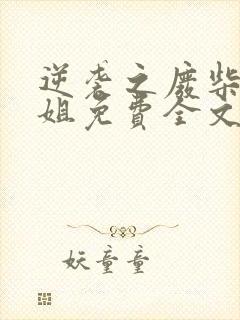 逆袭之废柴
姐免費全文
妖童童